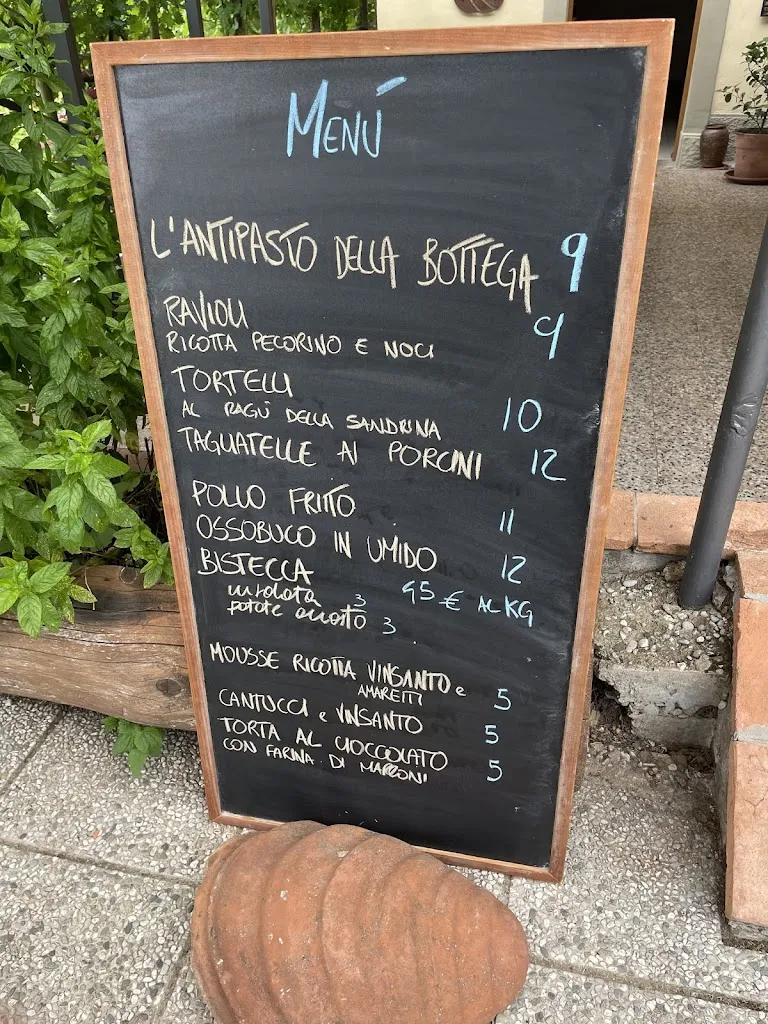 MENÚ
L'ANTIPASTO DELLA BOTTEGA 9
RAVIOLI 9
RICOTTA PECORINO E NOCI
TORTELLI
AL RAGÙ DELLA SANDRINA 10
TAGLIATELLE AI PORCINI 12
POLLO FRITTO 11
OSSOBUCO IN UMIDO 12
BISTECCA 45 € AL KG
insalata 3
patate arrosto 3
MOUSSE RICOTTA VINSANTO e
AMARETTI 5
CANTUCCI e VINSANTO 5
TORTA AL CIOCCOLATO 5
CON FARINA DI MARRONI